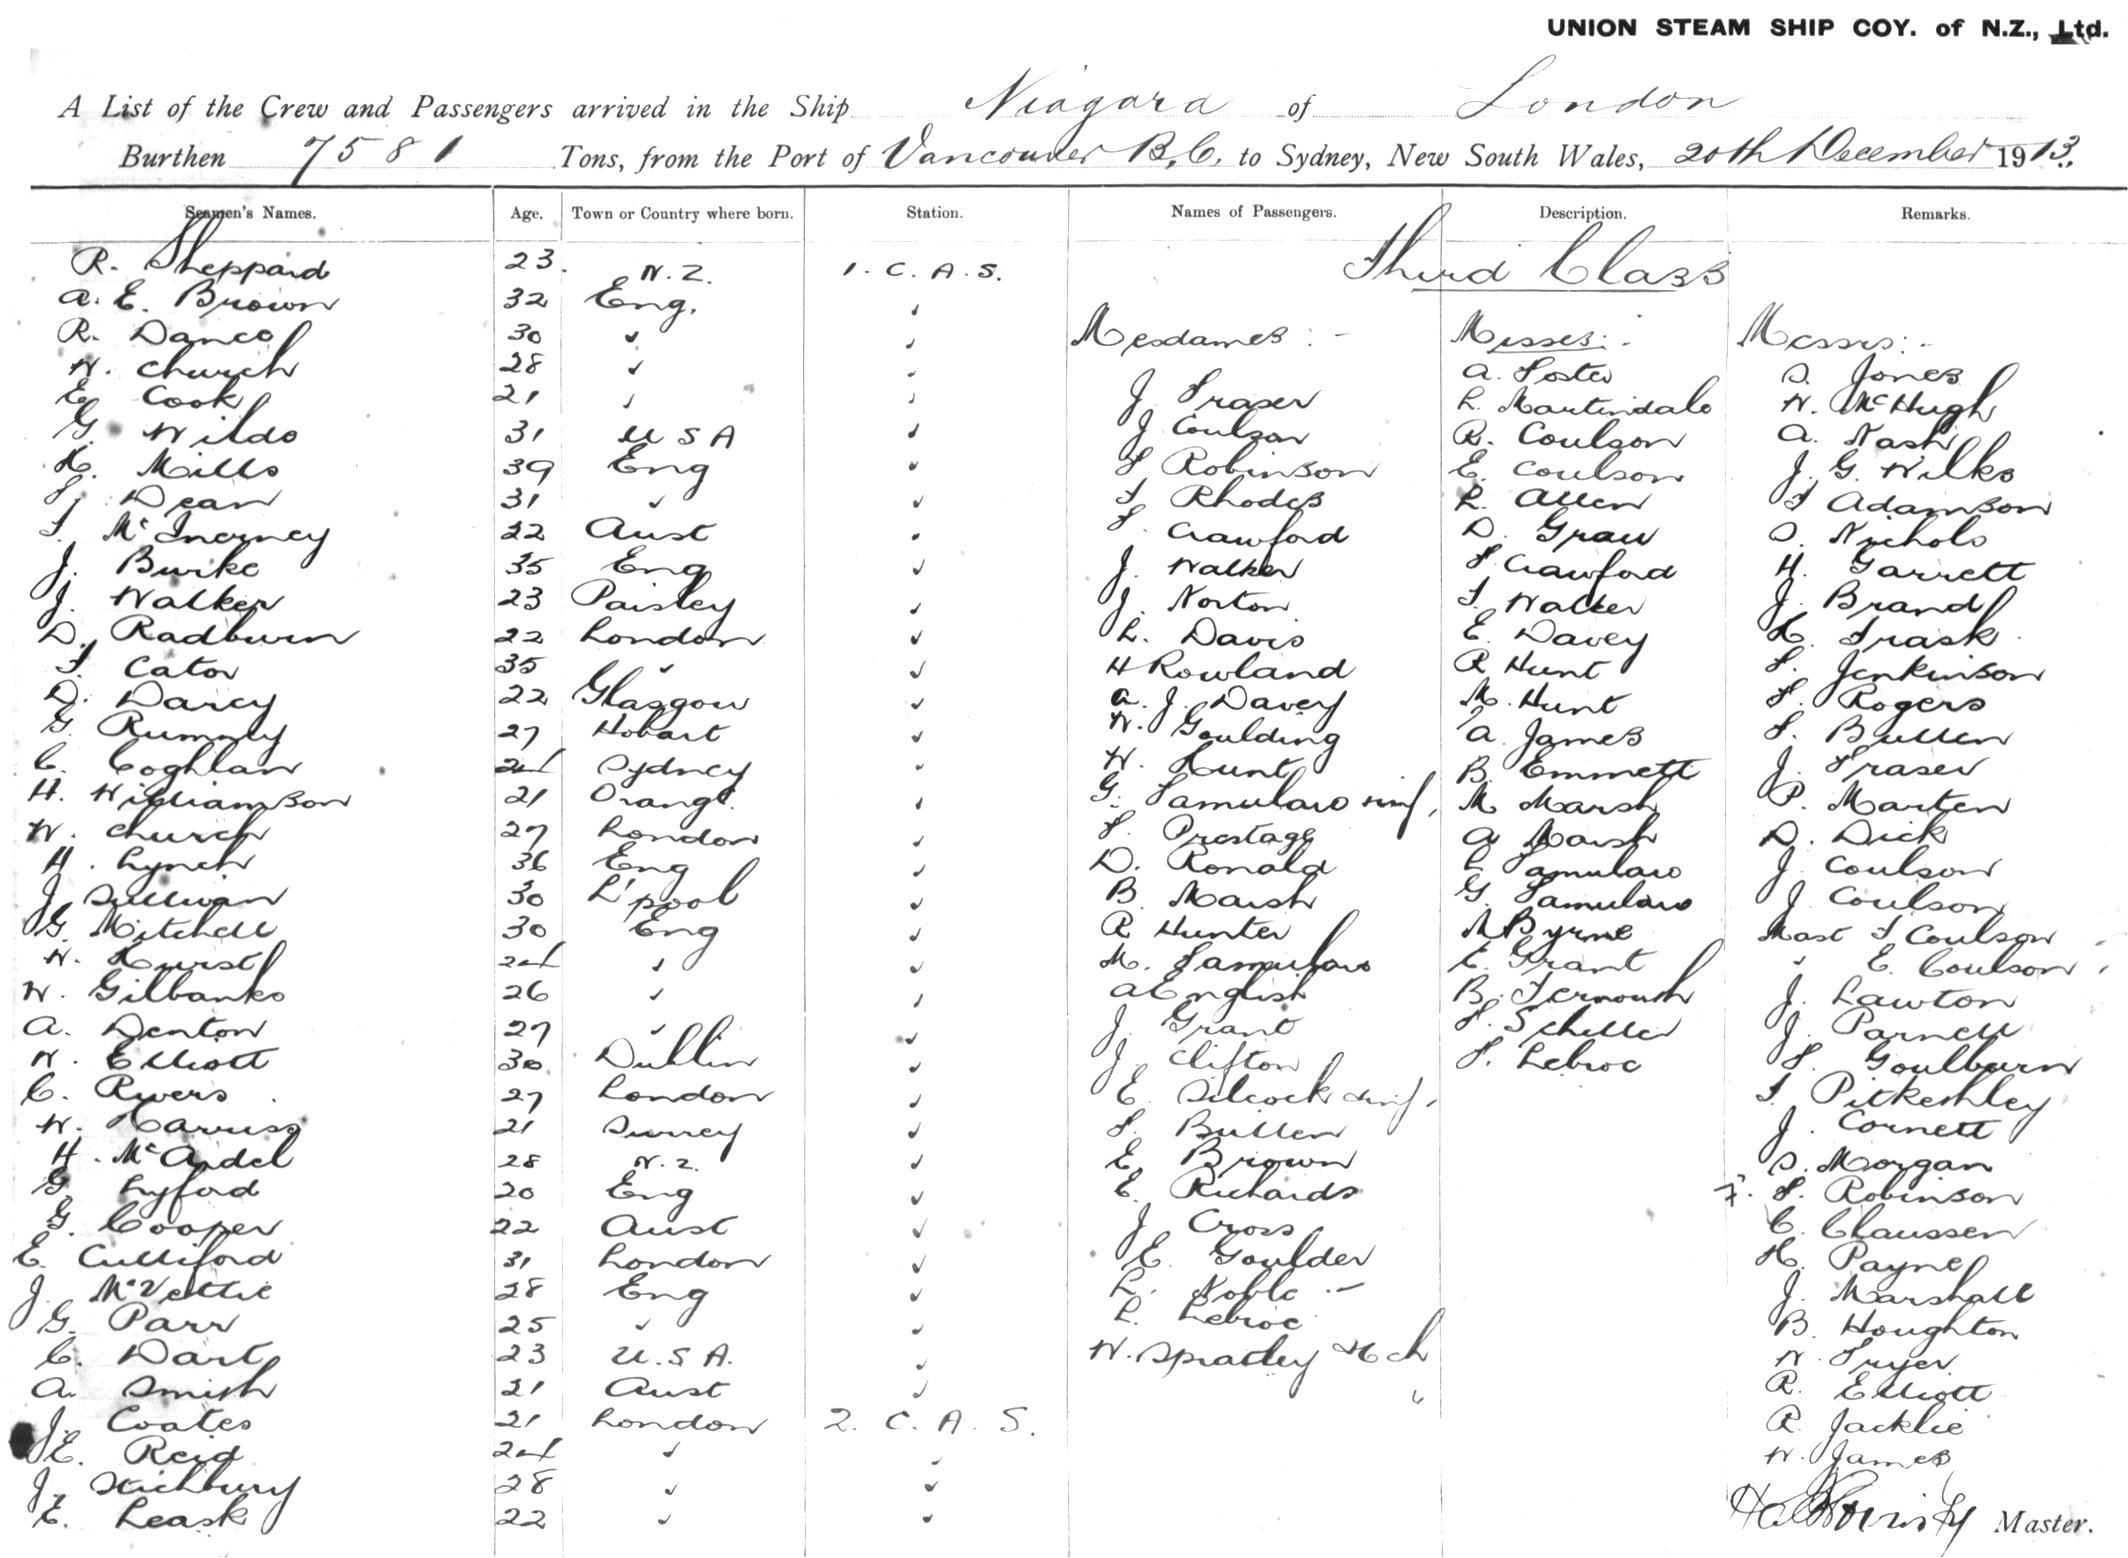 UNION STEAM SHIP COY. of N.Z., Ltd.
A List of the Crew and Passengers arrived in the Ship Niagara of London
Burthen 7581 Tons, from the Port of Vancouver B.C. to Sydney, New South Wales, 20th December 1913.
Seamen's Names. Age. Town or Country where born. Station. Names of Passengers. Description. Remarks.
R. Sheppard 23. N.Z. 1. C. A. S.
A. E. Brown 32 Eng. "
R. Danco 30 " "
W. Church 28 " "
E. Cook 21 " "
G. Wildo 31 U S A "
H. Mills 39 Eng "
Dean 31 " "
T. McInerney 22 Aust "
J. Burke 35 Eng "
J. Walker 23 Paisley "
D. Radburn 22 London "
T. Cator 35 " "
D. Darcy 22 Glasgow "
G. Rummy 27 Hobart "
C. Coghlan 24 Sydney "
H. Williamson 21 Orange. "
W. Church 27 London "
H. Lynch 36 Eng "
J Sullivan 30 L'pool "
G. Mitchell 30 Eng "
W. Hurst 24 " "
W. Gilbanks 26 " "
A. Denton 27 " "
W. Elliott 30 Dublin "
C. Rivers 27 London "
W. Harriss 21 Surrey "
H. McArdel 28 N.Z. "
G Lyford 20 Eng "
G. Cooper 22 Aust "
E. Culliford 31 London "
J. McVettie 28 Eng "
G. Parr 25 " "
C. Dart 23 U.S.A. "
A. Smith 21 Aust "
J. Coates 21 London 2. C. A. S.
E. Reid 24 " "
J. Stichbury 28 " "
E. Leask 22 " "
Third Class
Mesdames :-
J Fraser
J Coulson
F Robinson
T Rhodes
F. Crawford
J. Walker
J. Norton
L. Davis
H Rowland
A. J. Davey
W. Goulding
W. Hunt
G. Samularo inf,
F. Prestage
D. Ronald
B. Marsh
R Hunter
M. Samularo
A English
J. Grant
J Clifton
E. Silcock inf,
F. Bullen
E. Brown
E. Richards
J Cross
E. Goulder
L. Noble
L. Lebroc
W. Spratley & Ch
"
Misses:-
A. Foster
L. Martindale
R. Coulson
E. Coulson
L. Allen
D. Grau
F Crawford
T. Walker
E. Davey
R Hunt
M. Hunt
A. James
B. Emmett
M Marsh
A Marsh
C Samularo
G. Samularo
M Byrne
E. Grant
B. Fernouth
F. Scheller
F. Lebroc
Messrs:-
S. Jones
W. McHugh
A. Nash
J. G. Wilks
T Adamson
S. Nichols
H. Garrett
J. Brand
H. Trask
F. Jenkinson
F. Rogers
F. Bullen
J. Fraser
P. Marten
D. Dick
J Coulson
J Coulson
Mast T Coulson
" E. Coulson
J. Lawton
J. Parnell
F. Goulburn
T. Pitkethley
J. Cornett
S. Morgan
F. Robinson
C. Claussen
H. Payne
J. Marshall
B. Houghton
W. Fryer
R. Elliott
R. Jacklie
W. James
Master.